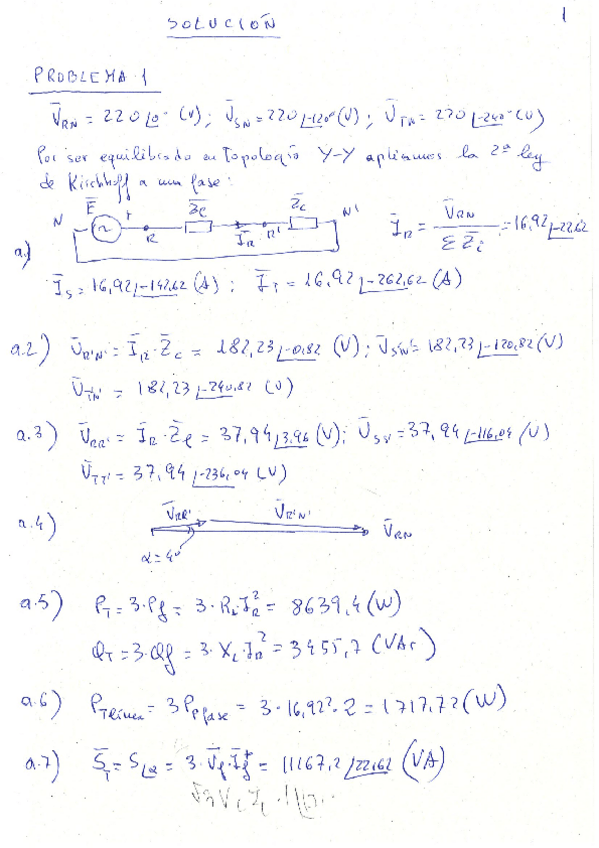 1
SOLUCIÓN
PROBLEMA 1
V̄RN = 220∠0° (V); ŪSN = 220∠-120° (V); ŪTN = 220∠-240° (V)
Por ser equilibrado en topología Y-Y aplicamos la 2ª ley
de Kirchhoff a una fase:
N Ē + R Z̄ℓ ĪR R' Z̄c N' ĪR = V̄RN / Σ Z̄i = 16,92∠-22,62
a.)
ĪS = 16,92∠-142,62 (A); ĪT = 16,92∠-262,62 (A)
a.2) ŪR'N' = ĪR · Z̄c = 182,23∠-0,82 (V); ŪS'N' = 182,23∠-120,82 (V)
ŪTN' = 182,23∠-240,82 (V)
a.3) ŪRR' = ĪR · Z̄ℓ = 37,94∠3,96 (V); ŪSS' = 37,94∠-116,04 (V)
ŪTT' = 37,94∠-236,04 (V)
a.4) V̄RR' V̄R'N' V̄RN
α = 4°
a.5) PT = 3·Pf = 3·RL·IR² = 8639,4 (W)
QT = 3·Qf = 3·XL·IR² = 3455,7 (VAr)
a.6) PTlínea = 3PPfase = 3·16,92²·2 = 1717,72 (W)
a.7) S̄T = S∠α = 3·V̄f·Īf* = 11167,2∠22,62 (VA)